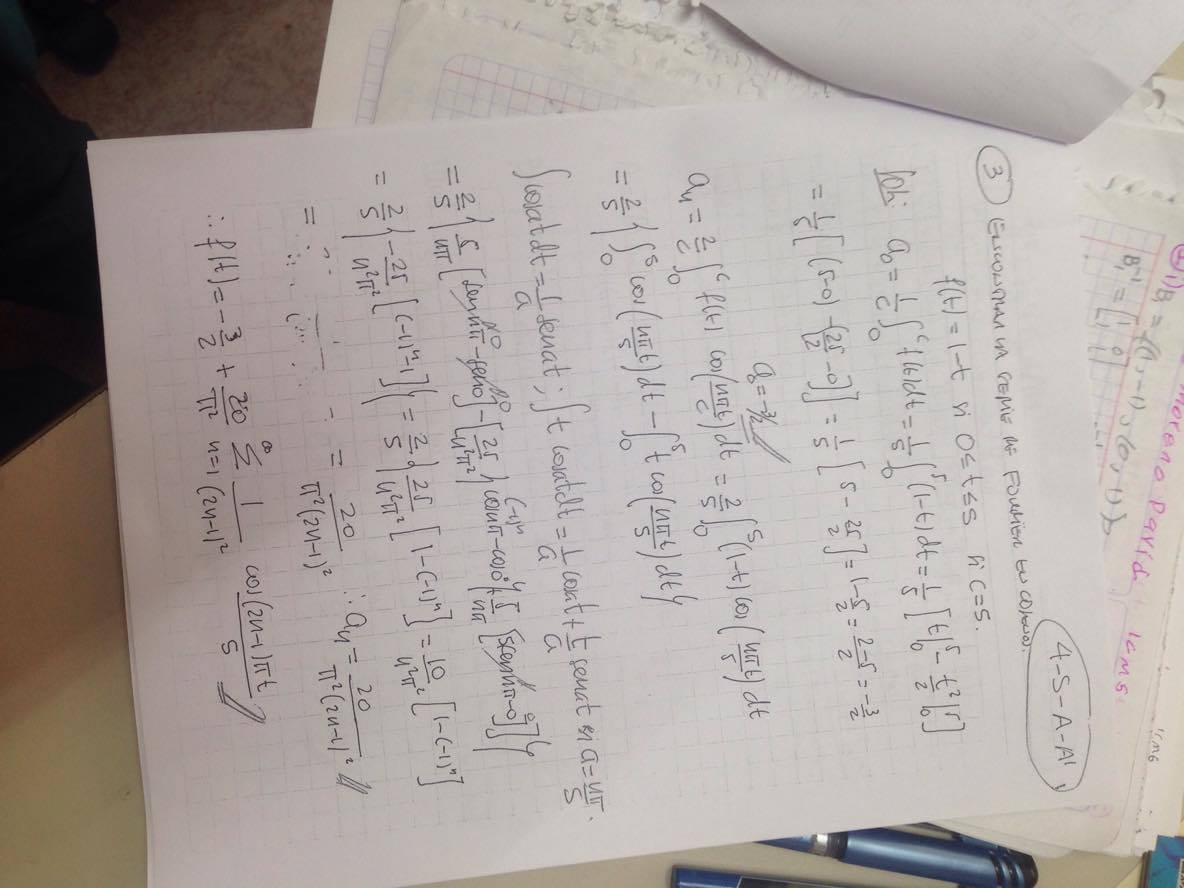 Moreno David
1CM6
1CM5
i) B₁ = {(1,-1), (0,1)}
B₁⁻¹ = [1 0
4-S-A-A'
③ ENCONTRAR LA SERIE DE FOURIER EN COSENOS.
f(t) = 1-t si 0≤t≤5 si c=5.
Soln: a₀ = 1/c ∫₀^c f(t)dt = 1/5 ∫₀^5 (1-t)dt = 1/5 [t|₀^5 - t²/2|₀^5]
= 1/5 [(5-0) - (25/2 - 0)] = 1/5 [5 - 25/2] = 1-5/2 = 2-5/2 = -3/2
a₀ = -3/2 //
aₙ = 2/c ∫₀^c f(t) cos(nπt/c)dt = 2/5 ∫₀^5 (1-t) cos(nπt/5) dt
= 2/5 {∫₀^5 cos(nπt/5)dt - ∫₀^5 t cos(nπt/5)dt}
∫cosat dt = 1/a senat; ∫t cosat dt = 1/a cosat + t/a senat si a = nπ/5.
= 2/5 {5/nπ [sennπ - sen0] - [25/n²π² {cosnπ - cos0} + 5/nπ [5sennπ-0]]}
= 2/5 {-25/n²π² [(-1)ⁿ-1]} = 2/5 {25/n²π² [1-(-1)ⁿ] = 10/n²π² [1-(-1)ⁿ]
= = 20/π²(2n-1)² ∴ aₙ = 20/π²(2n-1)² //
∴ f(t) = -3/2 + 20/π² ∑_{n=1}^∞ 1/(2n-1)² cos(2n-1)πt/5 //